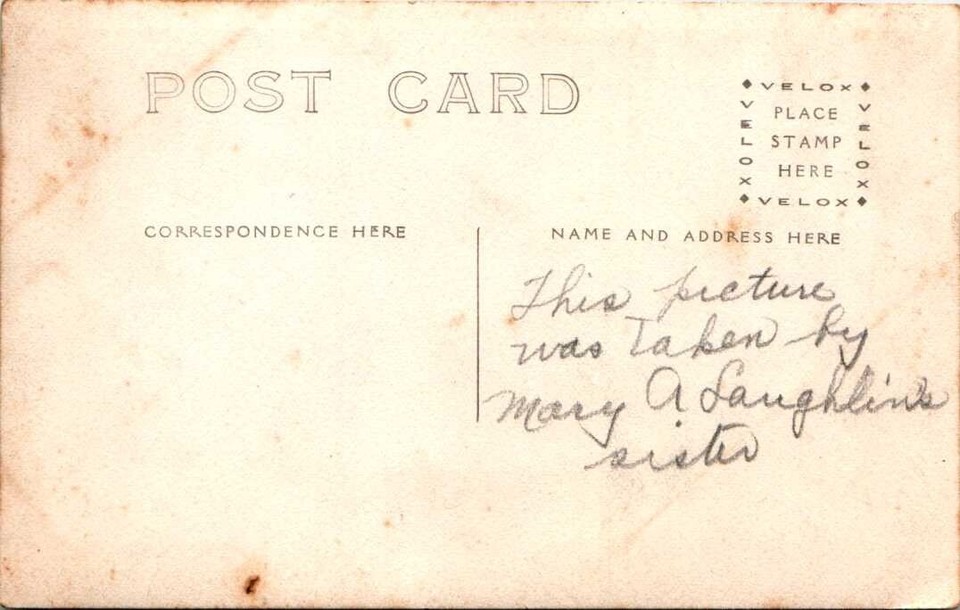 POST CARD
VELOX
VELOX
VELOX
PLACE
STAMP
HERE
VELOX
CORRESPONDENCE HERE
NAME AND ADDRESS HERE
This picture
was taken by
Mary A Laughlin's
sister